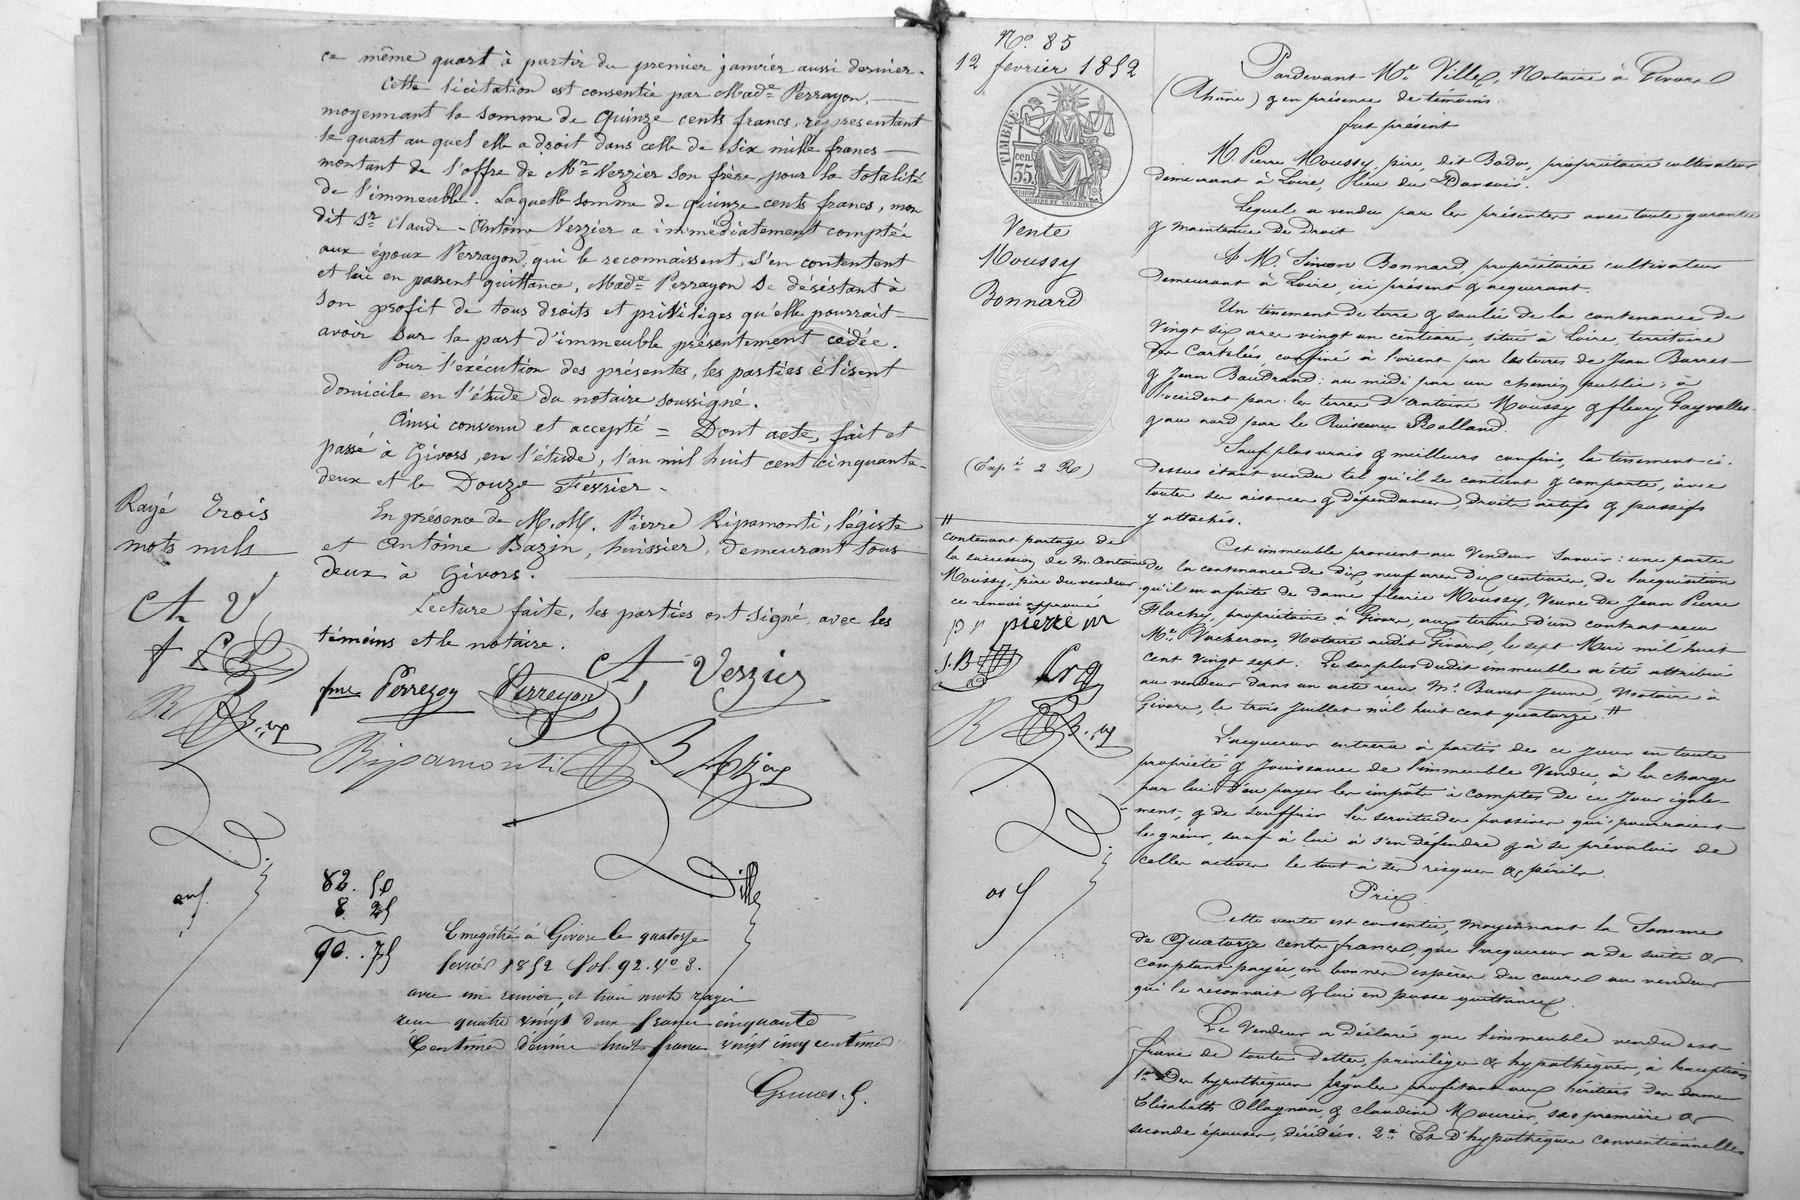 ce même quart à partir du premier janvier aussi dernier.
Cette licitation est consentie par Made Perrayon,
moyennant la somme de quinze cents francs, représentant
le quart au quel elle a droit dans celle de six mille francs
montant de l'offre de Mr Verzier son frère, pour la totalité
de l'immeuble. Laquelle somme de quinze cents francs, mon
dit Sr Claude-Antoine Verzier a immédiatement comptée
aux époux Perrayon, qui le reconnaissent, s'en contentent
et lui en passent quittance, Made Perrayon se désistant à
son profit de tous droits et privilèges qu'elle pourrait
avoir sur la part d'immeuble présentement cédée.
Pour l'exécution des présentes, les parties élisent
domicile en l'étude du notaire soussigné.
Ainsi convenu et accepté = Dont acte, fait et
passé à Givors, en l'étude, l'an mil huit cent cinquante-
deux et le Douze Février.
En présence de M.M. Pierre Ripamonti, légiste
et Antoine Bazin, huissier, demeurant tous
deux à Givors.
Lecture faite, les parties ont signé avec les
témoins et le notaire.
Rayé trois
mots nuls
fme Perrezoy Perreyon CA Verzier
Ripamonti
Ville
82. 50
8. 25
90. 75
Enregistré à Givors le quatorze
février 1852 fol. 92. Vo 8.
avec un renvoi, et trois mots rayés
reçu quatre vingt deux francs cinquante
centimes décime huit francs vingt cinq centimes
No 85
12 février 1852
TIMBRE
cen. 35
Vente
Moussy
Bonnard
(Expée 2 R)
#
contenant partage de
la succession de M. Antoine
Moussy, père du vendeur
ce renvoi approuvé
pierre m
Pardevant Me Ville, Notaire à Givors
(Rhône) & en présence de témoins.
fut présent
M. Pierre Moussy, père, dit Badou, propriétaire cultivateur
demeurant à Loire, lieu du
Lequel a vendu par les présentes avec toute garantie
& maintenue de droit
A M. Simon Bonnard, propriétaire cultivateur
demeurant à Loire, ici présent & acquérant.
Un tènement de terre & saulée de la contenance de
vingt six ares vingt un centiares, situé à Loire, territoire
des Cartelées, confiné à l'orient par les terres de Jean Barret
& Jean Baudrand; au midi par un chemin public; à
l'occident par les terres d'Antoine Moussy & fleury
& au nord par le Ruisseau Rolland.
Sauf plus vrais & meilleurs confins, le tènement ci-
dessus étant vendu tel qu'il se contient & comporte, avec
toutes ses aisances & dépendances, droits actifs & passifs
y attachés.
Cet immeuble provient au Vendeur Savoir: une partie
de la contenance de dix neuf ares dix centiares, de l'acquisition
qu'il en a faite de dame fleurie Moussy, Veuve de Jean Pierre
Flachy, propriétaire à Givors, aux termes d'un contrat reçu
Me Vacheron, Notaire audit Givors, le sept Mai mil huit
cent vingt sept: Le surplus dudit immeuble a été attribué
au vendeur dans un acte reçu Me Jeune, Notaire à
Givors, le trois Juillet mil huit cent quatorze. #
L'acquéreur entrera à partir de ce Jour en toute
propriété & Jouissance de l'immeuble Vendu, à la charge
par lui d'en payer les impôts à compter de ce Jour égale-
ment, & de souffrir les servitudes passives qui pourraient
le grever, sauf à lui à s'en défendre & à se prévaloir de
celles actives le tout à ses risques & périls.
Prix
Cette vente est consentie, moyennant la Somme
de Quatorze cents francs, que l'acquéreur a de suite &
comptant payée, en bonnes espèces du cours au vendeur
qui le reconnait & lui en passe quittance.
Le Vendeur a déclaré que l'immeuble vendu est
franc de toutes dettes, privilèges & hypothèques, à l'exception
1o Des hypothèques légales profitant aux héritiers des dames
Elisabeth Ollagnon, & Claudine Mourier, ses première &
seconde épouses, décédés. 2o Et d'hypothèques conventionnelles